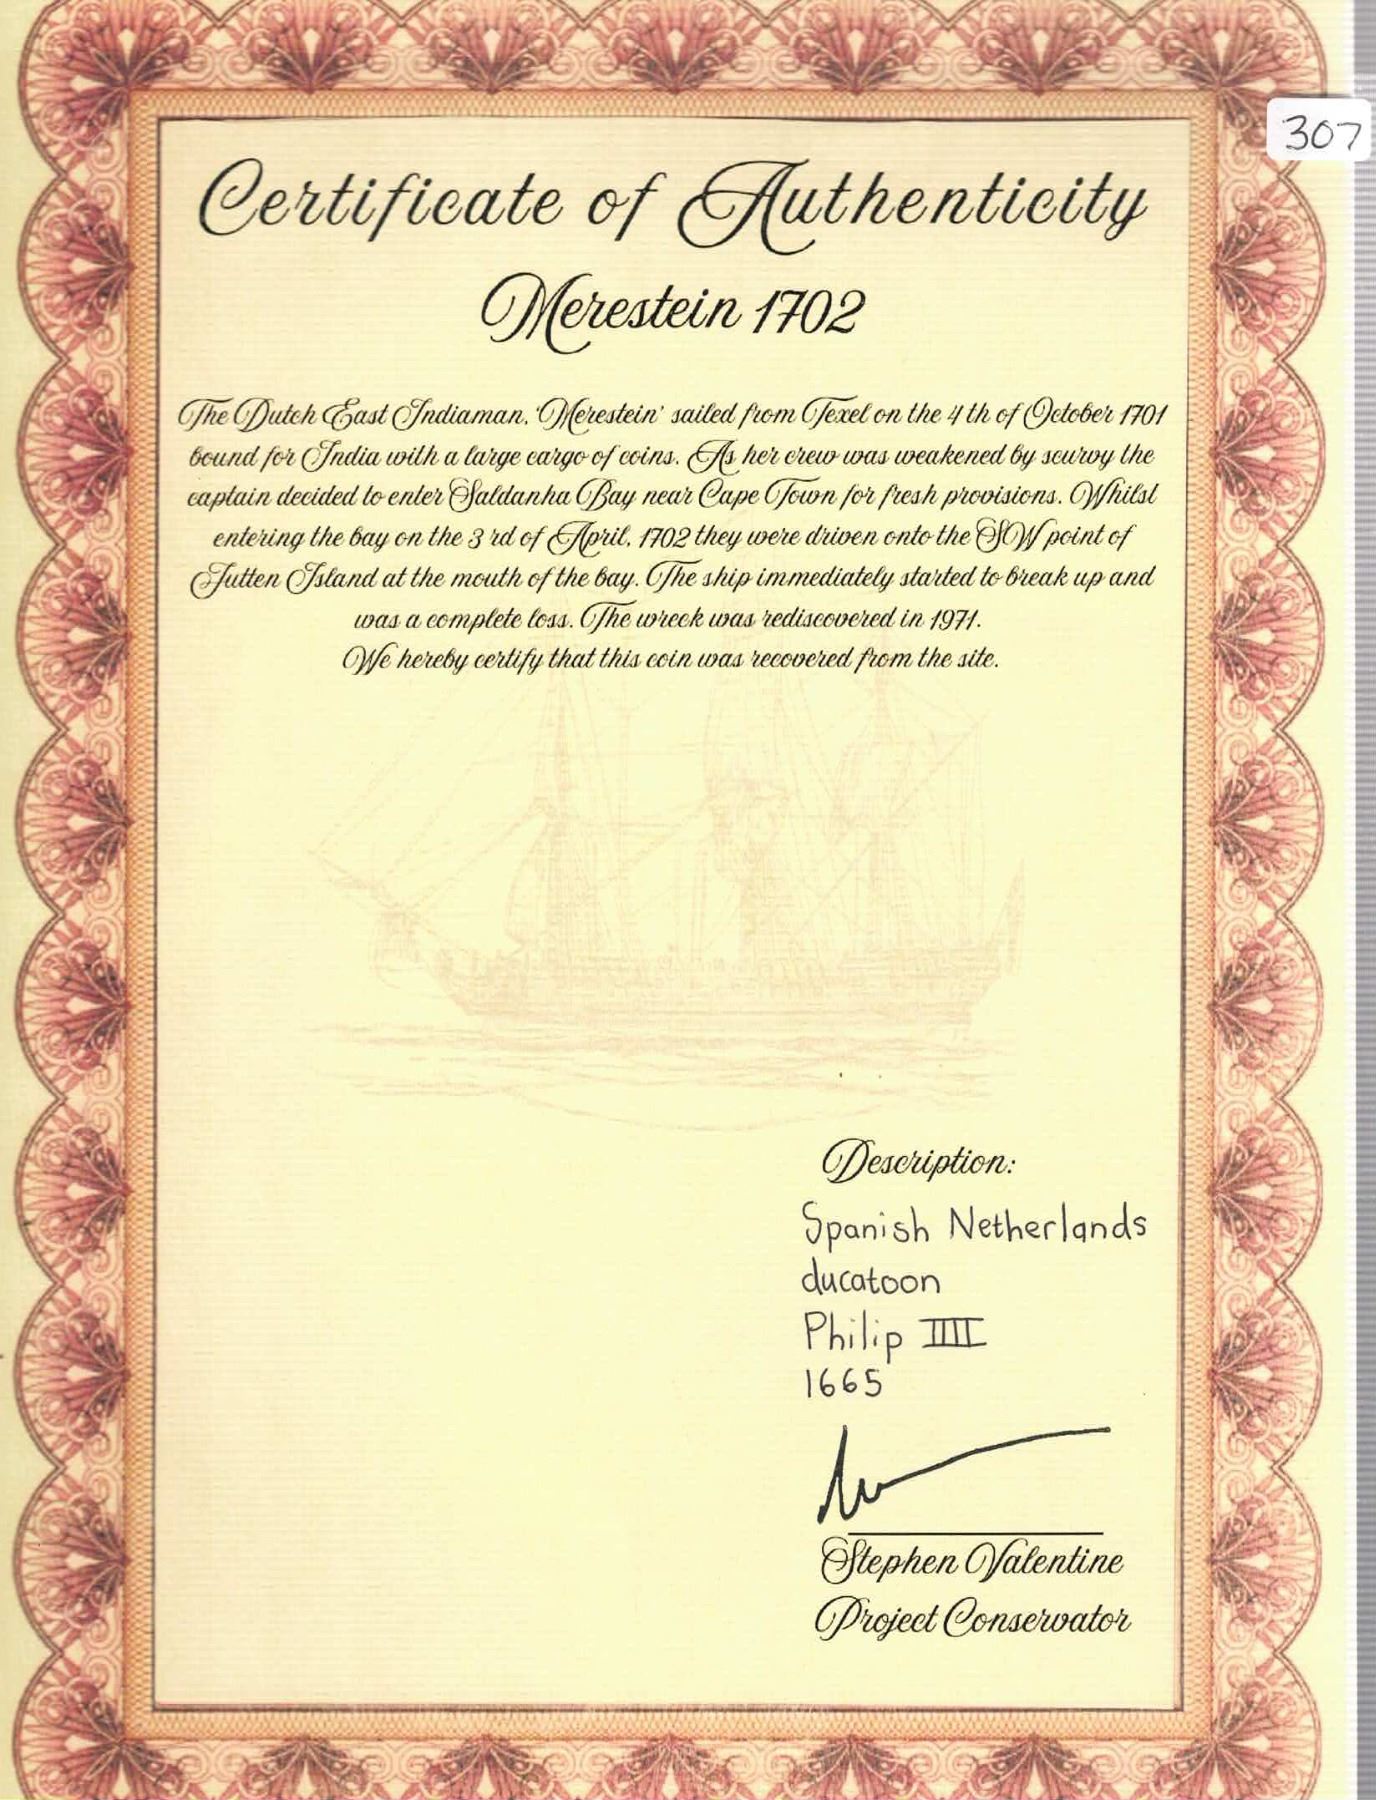 307
Certificate of Authenticity
Merestein 1702
The Dutch East Indiaman, 'Merestein' sailed from Texel on the 4 th of October 1701
bound for India with a large cargo of coins. As her crew was weakened by scurvy the
captain decided to enter Saldanha Bay near Cape Town for fresh provisions. Whilst
entering the bay on the 3 rd of April, 1702 they were driven onto the SW point of
Jutten Island at the mouth of the bay. The ship immediately started to break up and
was a complete loss. The wreck was rediscovered in 1971.
We hereby certify that this coin was recovered from the site.
Description:
Spanish Netherlands
ducatoon
Philip IIII
1665
Stephen Valentine
Project Conservator